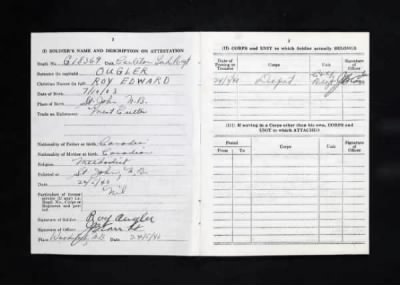 2
(I) SOLDIER'S NAME AND DESCRIPTION ON ATTESTATION
Regtl. No. G18369
Surname (in capitals) OUGLER
Christian Names (in full) ROY EDWARD
Date of Birth
Place of Birth St John N.B.
Trade on Enlistment Meat Cutter
Nationality of Father at birth Canadian
Nationality of Mother at birth Canadian
Religion Methodist
Enlisted at St John, N.B.
24/5/40
Nil
Signature of Soldier Roy Ougler
Signature of Officer
Place Woodstock N.B. Date 24/5/40
3
(II) CORPS and UNIT to which Soldier actually BELONGS
Date of Posting or Transfer
Corps
Unit
Signature of Officer
24/5/40 Depot
(III) If serving in a Corps other than his own, CORPS and UNIT to which ATTACHED
Period
Corps
Unit
Signature of Officer
From
To